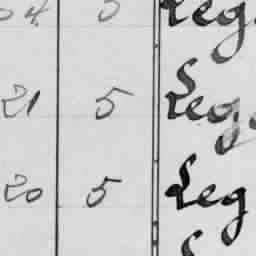 5 Leg
21 5 Leg
20 5 Leg